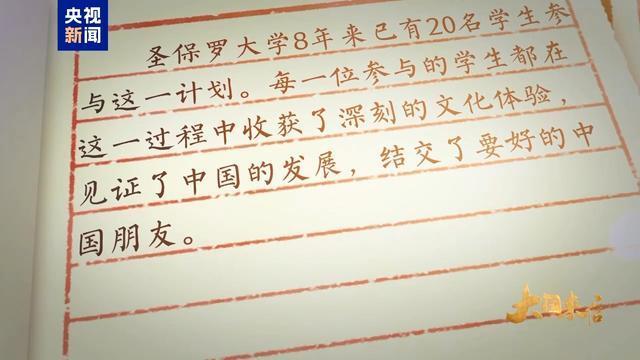 央视
新闻
圣保罗大学8年来已有20名学生参
与这一计划。每一位参与的学生都在
这一过程中收获了深刻的文化体验，
见证了中国的发展，结交了要好的中
国朋友。
大国来信